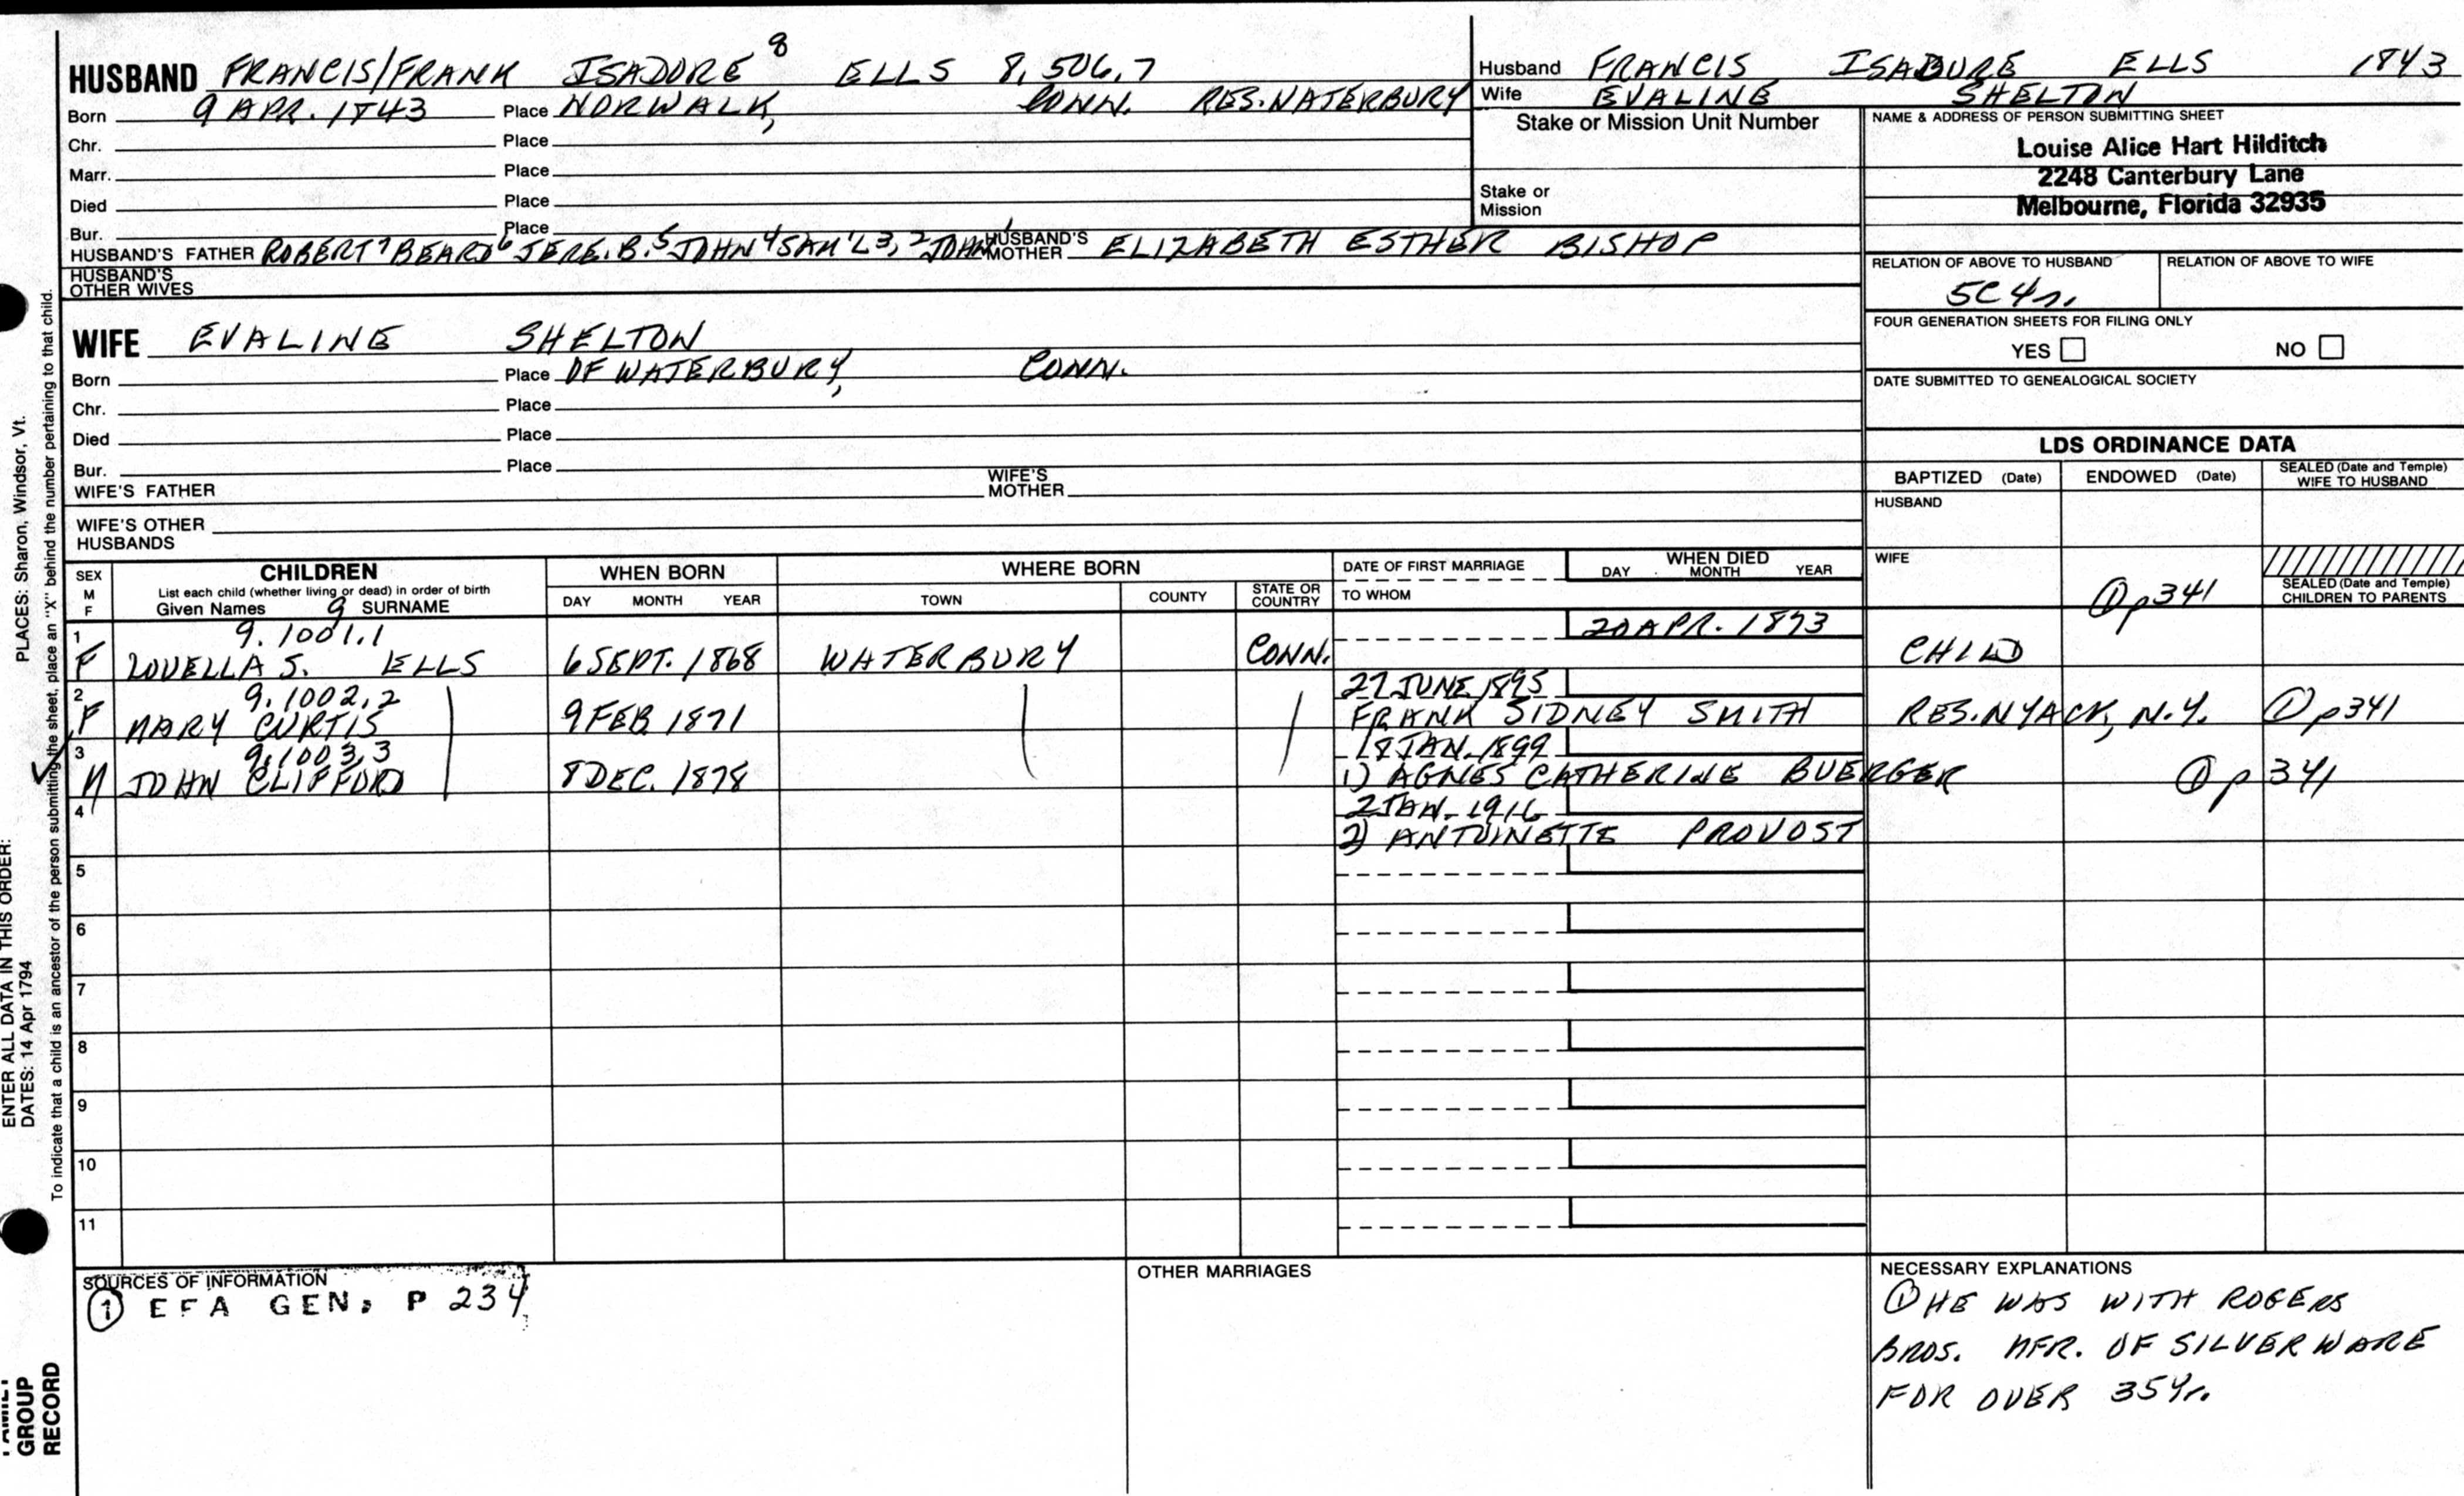 HUSBAND FRANCIS/FRANK ISADORE 8 ELLS 8,506,7
Born 9 APR. 1843 Place NORWALK, CONN. RES. WATERBURY
Chr. Place
Marr. Place
Died Place
Bur. Place
HUSBAND'S FATHER ROBERT 7 BEARD 6 JERE. B. 5 JOHN 4 SAM'L 3, 2 JOHN 1 HUSBAND'S MOTHER ELIZABETH ESTHER BISHOP
HUSBAND'S OTHER WIVES
WIFE EVALINE SHELTON
Born Place OF WATERBURY, CONN.
Chr. Place
Died Place
Bur. Place
WIFE'S FATHER WIFE'S MOTHER
WIFE'S OTHER HUSBANDS
Husband FRANCIS ISADORE ELLS 1843
Wife EVALINE SHELTON
Stake or Mission Unit Number
Stake or Mission
NAME & ADDRESS OF PERSON SUBMITTING SHEET
Louise Alice Hart Hilditch
2248 Canterbury Lane
Melbourne, Florida 32935
RELATION OF ABOVE TO HUSBAND RELATION OF ABOVE TO WIFE
5C4r.
FOUR GENERATION SHEETS FOR FILING ONLY
YES NO
DATE SUBMITTED TO GENEALOGICAL SOCIETY
LDS ORDINANCE DATA
BAPTIZED (Date) ENDOWED (Date) SEALED (Date and Temple) WIFE TO HUSBAND
HUSBAND
WIFE
① p341
SEALED (Date and Temple) CHILDREN TO PARENTS
SEX M F
CHILDREN
List each child (whether living or dead) in order of birth
Given Names 9 SURNAME
WHEN BORN
DAY MONTH YEAR
WHERE BORN
TOWN COUNTY STATE OR COUNTRY
DATE OF FIRST MARRIAGE
TO WHOM
WHEN DIED
DAY MONTH YEAR
1 9.1001.1 20 APR. 1873
F LOUELLA S. ELLS 6 SEPT. 1868 WATERBURY CONN. CHILD
2 9.1002,2 27 JUNE 1895
F MARY CURTIS 9 FEB 1871 FRANK SIDNEY SMITH RES. NYACK, N.Y. ① p341
3 9.1003,3 18 JAN. 1899
M JOHN CLIFFORD 8 DEC. 1878 1) AGNES CATHERINE BUERGER ① p341
4 2 JAN. 1916
2) ANTOINETTE PROVOST
5
6
7
8
9
10
11
SOURCES OF INFORMATION
① EFA GEN, P 234
OTHER MARRIAGES
NECESSARY EXPLANATIONS
① HE WAS WITH ROGERS
BROS. MFR. OF SILVERWARE
FOR OVER 35 Yr.
PLACES: Sharon, Windsor, Vt.
To indicate that a child is an ancestor of the person submitting the sheet, place an "X" behind the number pertaining to that child.
ENTER ALL DATA IN THIS ORDER:
DATES: 14 Apr 1794
FAMILY
GROUP
RECORD